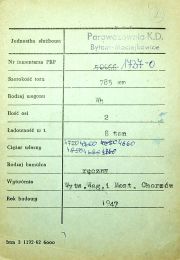 Jednostka służbowa Parowozownia K.D.
Bytom-Maciejkowice
Nr inwentarza PKP 1737-0
Szerokość toru 785 mm
Rodzaj wagonu
Ilość osi 2
Ładowność w t. 8 ton
Ciężar własny 4720 4860
Rodzaj hamulca ręczny
Wytwórnia Wytw. Wag. i Most. Chorzów
Rok budowy 1947